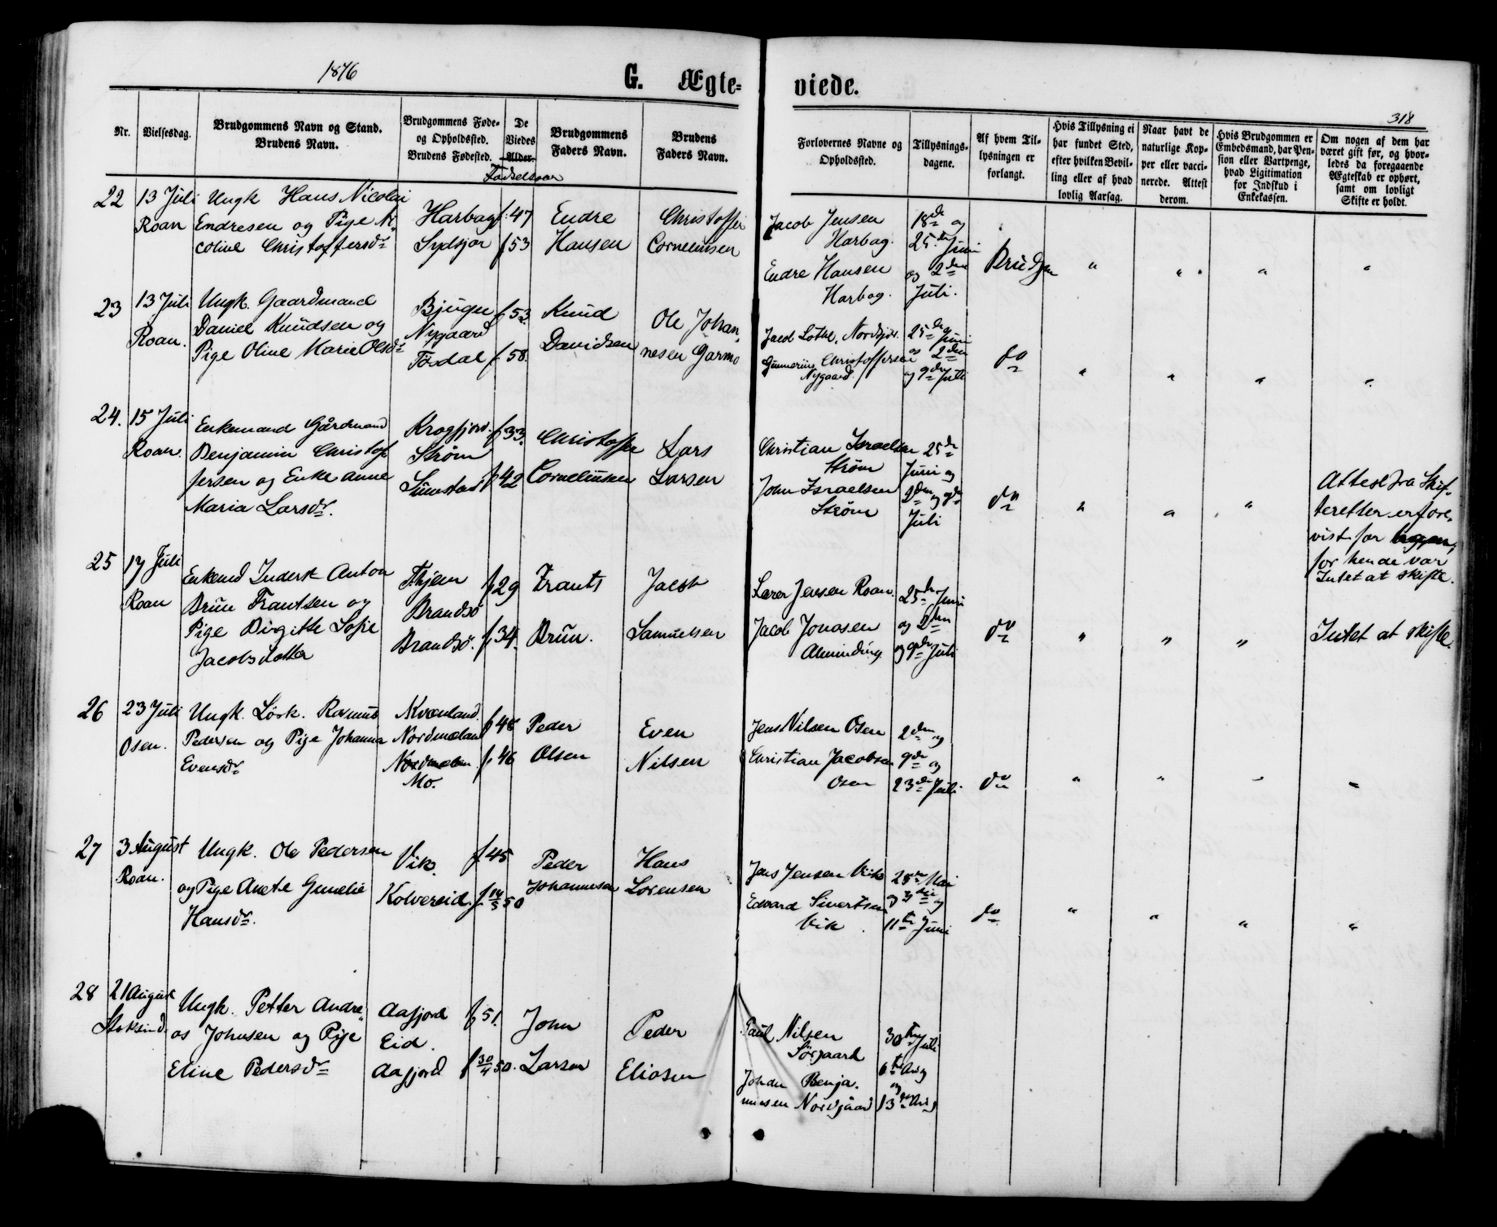 1876
G. Ægte=
viede.
318
Nr.
Vielsesdag.
Brudgommens Navn og Stand.
Brudens Navn.
Brudgommens Føde-
og Opholdssted.
Brudens Fødested.
De
Viedes
Alder.
Fødselsaar
Brudgommens
Faders Navn.
Brudens
Faders Navn.
Forlovernes Navne og
Opholdssted.
Tillysnings-
dagene.
Af hvem Til-
lysningen er
forlangt.
Hvis Tillysning ei
har fundet Sted,
efter hvilken Bevil-
ling eller af hvad
lovlig Aarsag.
Naar havt de
naturlige Kop-
per eller vacci-
nerede. Attest
derom.
Hvis Brudgommen er
Embedsmand, har Pen-
sion eller Vartpenge,
hvad Legitimation
for Indskud i
Enkekassen.
Om nogen af dem har
været gift før, og hvor-
ledes da foregaaende
Ægteskab er ophørt,
samt om lovligt
Skifte er holdt.
22
13 Juli
Roan
Ungk Hans Nicolai
Endresen og Pige Ni-
coline Christoffersdr
Harbag
Sydsjør
f 47
f 53
Endre
Hansen
Christoffer
Corneliusen
Jacob Jensen
Harbag.
Endre Hansen
Harbag.
18de og
25de Juni
og 2den
Juli.
Brudgm
" " " "
23
13 Juli
Roan.
Ungk. Gaardmand
Daniel Knudsen og
Pige Oline Marie Olsdr
Bjugn
Nygaard
f 53.
f 58.
Knud
Davidsen
Ole Johan-
nesen Garmo
Jacob Lothe, Nordsjør.
Christoffersen
Nygaard
25de Juni
2den
og 9de Juli
do
" " " "
24.
15 Juli
Roan.
Enkemand Gårdmand
Benjamin Christof
fersen og Enke Anne
Maria Larsdr.
Krogfjord.
Strøm
Sumstad
f 33.
f 42
Christoffer
Corneliusen
Lars
Larsen
Christian Israelsen
Strøm
John Israelsen
Strøm
25de
Juni og
2den og 9de
Juli
do
" " "
Attest fra Skif-
teretten er fore-
vist for
for hende var
Intet at skifte.
25
17 Juli
Roan
Enkemd Inderst Anton
Brun Frantsen og
Pige Birgitte Sofie
Jacobsdotter
Brandsø
Brandsø.
f 29
f 34.
Frants
Brun.
Jacob
Samuelsen
Lærer Jensen Roan
Jacob Jonasen
Alminding
25de Juni
og 2den
og 9de Juli
do
" " "
Intet at skifte.
26
23 Juli
Osen.
Ungk. Løsk. Rasmus
Pedersen og Pige Johanna
Evensdr
Kvænland.
Mo.
f 48
f 46
Peder
Olsen
Even
Nilsen
Jens Nilsen Osen
Christian Jacobsen
Osen
2den og
9de og
23de Juli
do
" " " "
27
3 August
Roan.
Ungk. Ole Pedersen
og Pige Anete Gunelie
Hansdr.
Vik
Kolvereid.
f 45
f 14/3 50
Peder
Johannesen
Hans
Lorensen
Jens Jensen Vik
Edvard Sivertsen
Vik
28de Mai
og
11te Juni
do
" " " "
28
21 August
Stoksund.
Ungk. Petter Andre-
as Johnsen og Pige
Eline Pedersdr
Aafjord
Eid.
Aafjord
f 51.
f 30/4 50.
John
Larsen
Peder
Eliasen
Paul Nilsen
Sørgaard
Johan Benja-
minsen Nordgaard
30te Juli
6te Aug
og
13de Aug